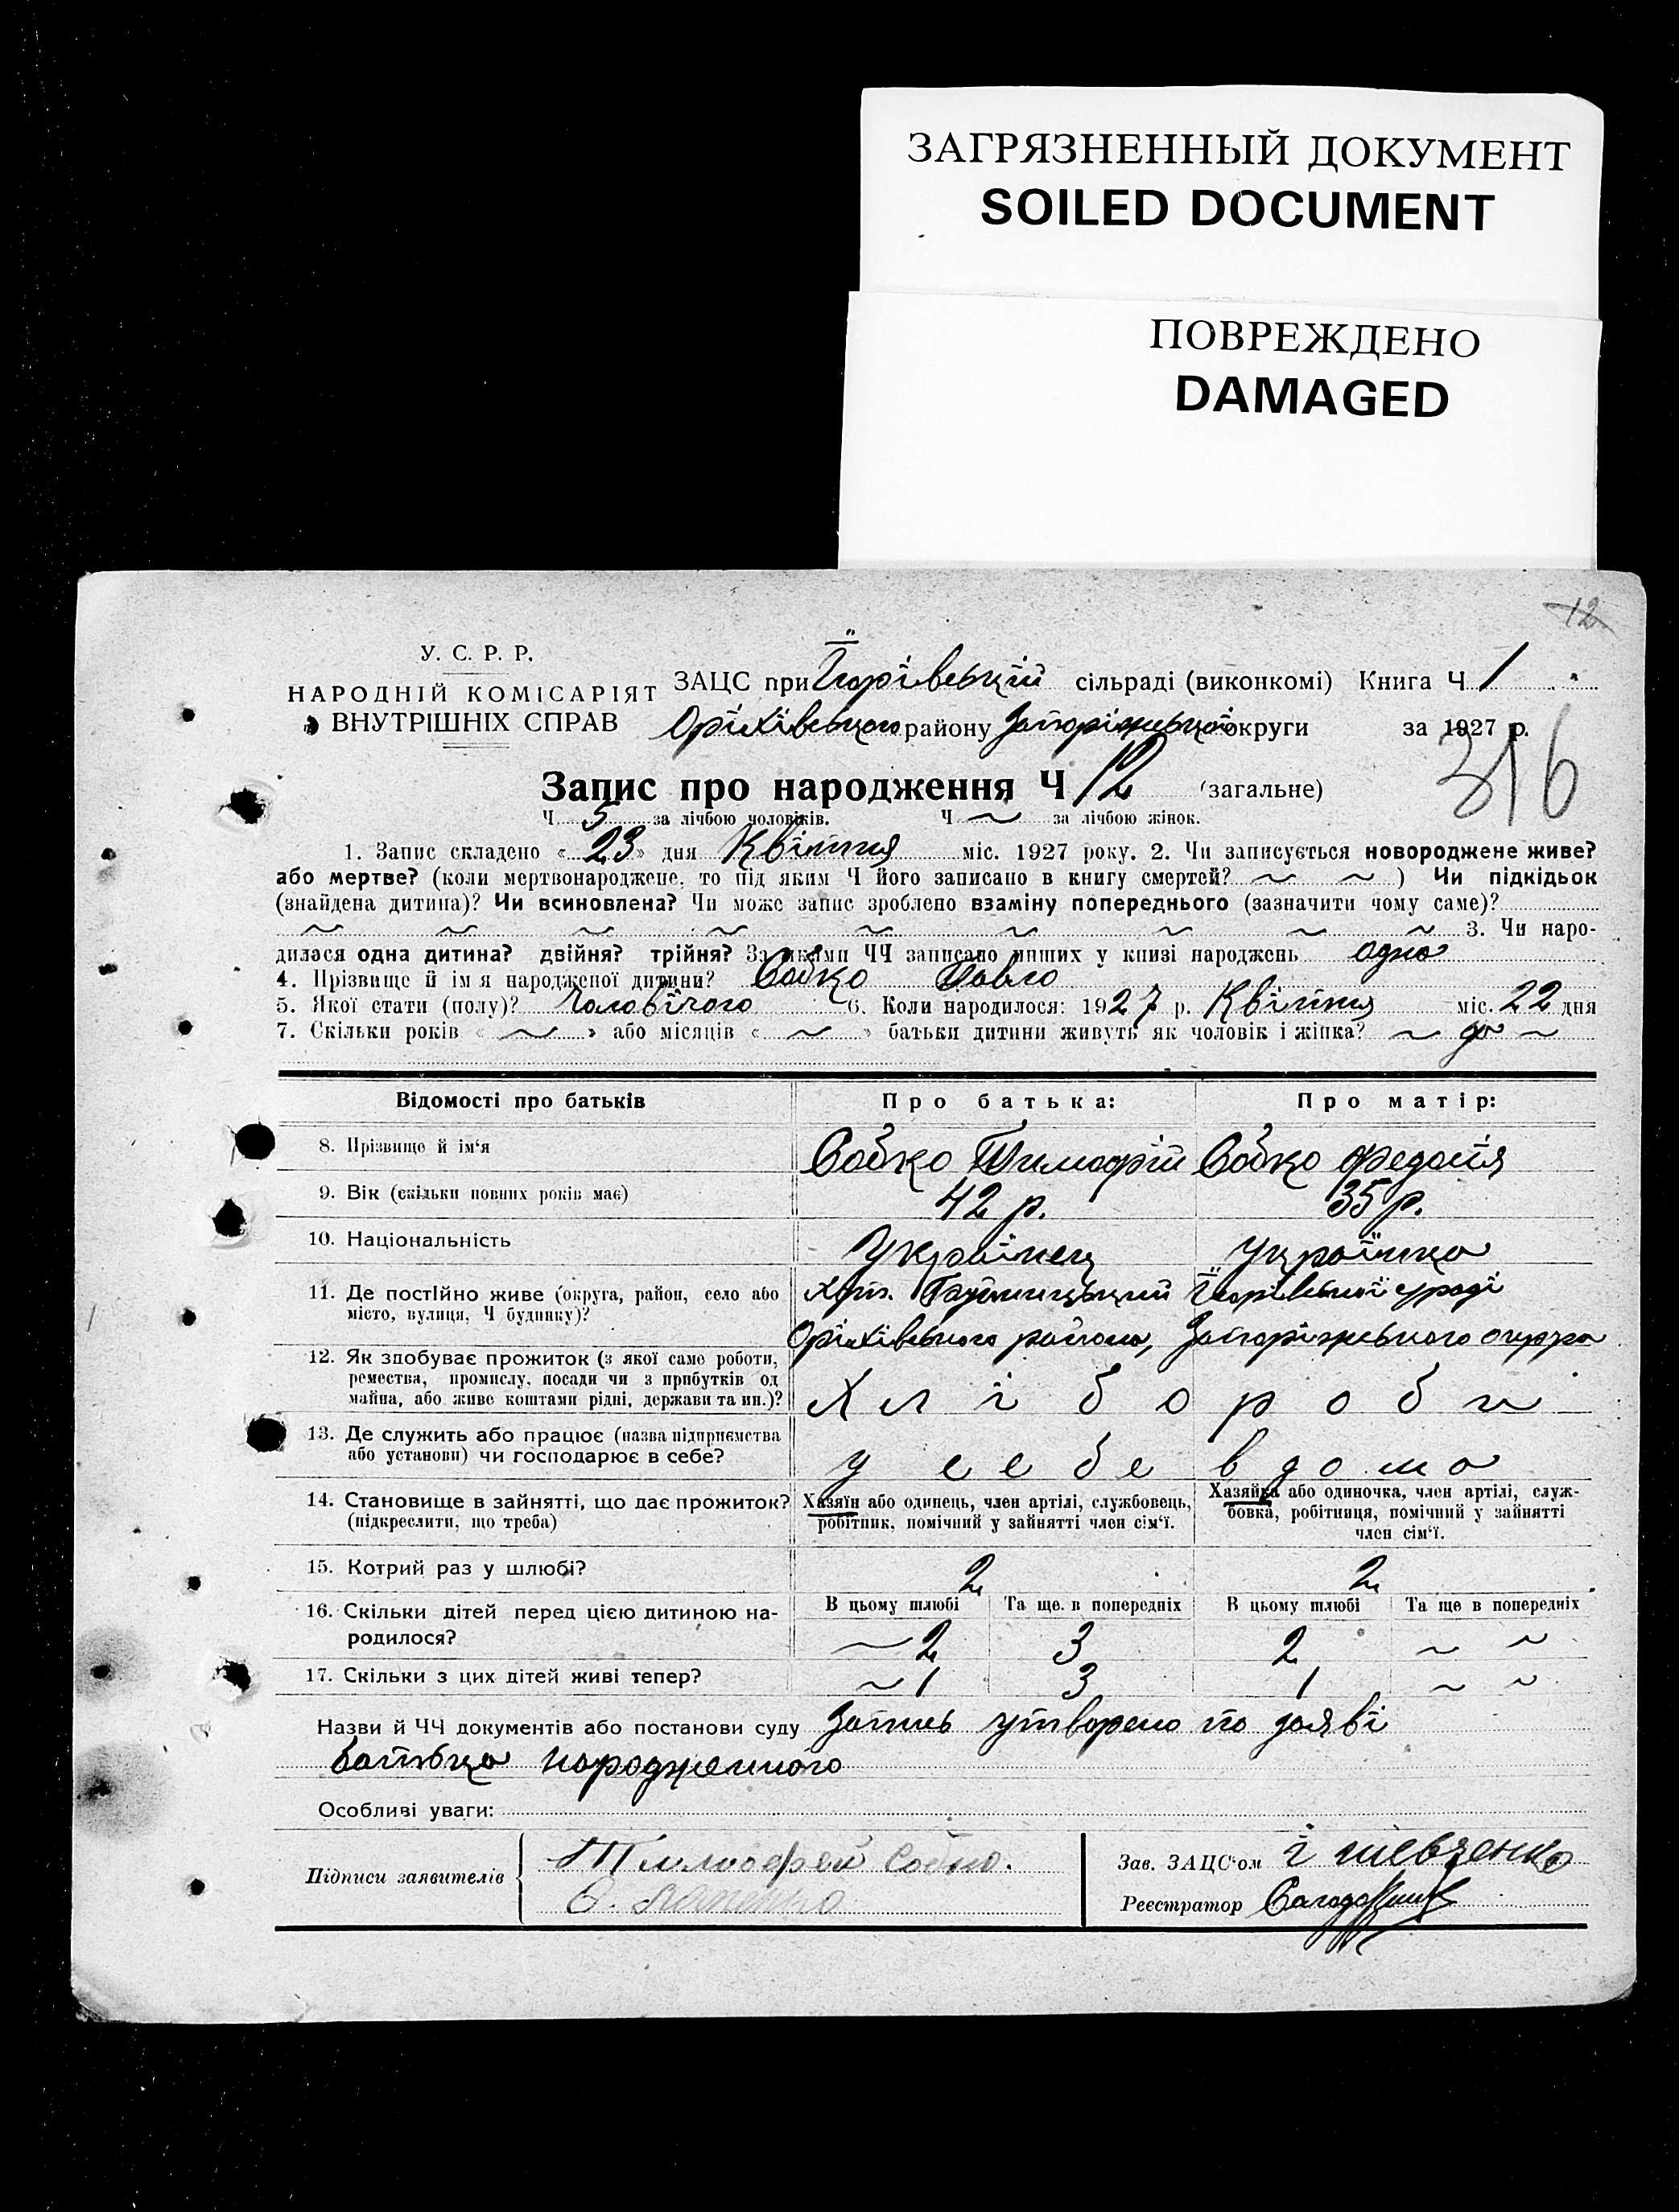 ЗАГРЯЗНЕННЫЙ ДОКУМЕНТ
SOILED DOCUMENT
ПОВРЕЖДЕНО
DAMAGED
12
У. С. Р. Р.
НАРОДНІЙ КОМІСАРІЯТ
ВНУТРІШНІХ СПРАВ
ЗАЦС при сільраді (виконкомі) Книга Ч 1
Оріхівського району Запоріжської округи за 1927 р.
316
Запис про народження Ч 12 (загальне)
Ч 5 за лічбою чоловіків. Ч ~ за лічбою жінок.
1. Запис складено « 23 » дня Квітня міс. 1927 року. 2. Чи записується новороджене живе?
або мертве? (коли мертвонароджене, то під яким Ч його записано в книгу смертей? ~ ~ ) Чи підкідьок
(знайдена дитина)? Чи всиновлена? Чи може запис зроблено взаміну попереднього (зазначити чому саме)?
~ ~ ~ ~ ~ ~ ~ ~ ~ 3. Чи наро-
дилася одна дитина? двійня? трійня? За якими ЧЧ записано инших у книзі народжень одна
4. Прізвище й ім'я народженої дитини? Собко Павло
5. Якої стати (полу)? Чоловічого 6. Коли народилося: 1927 р. Квітня міс. 22 дня
7. Скільки років « ~ » або місяців « ~ » батьки дитини живуть як чоловік і жінка? ~ ~
Відомості про батьків Про батька: Про матір:
8. Прізвище й ім'я Собко Тимофій Собко Федосія
9. Вік (скільки повних років має) 42 р. 35 р.
10. Національність Українец Українка
11. Де постійно живе (округа, район, село або
місто, вулиця, Ч будинку)?
Хут.
Оріхівського района, Запоріжського округа
12. Як здобуває прожиток (з якої саме роботи,
ремества, промислу, посади чи з прибутків од
майна, або живе коштами рідні, держави та ин.)?
Хлібороби
13. Де служить або працює (назва підприємства
або установи) чи господарює в себе?
у себе вдома
14. Становище в зайнятті, що дає прожиток?
(підкреслити, що треба)
Хазяїн або одинець, член артілі, службовець,
робітник, помічний у зайнятті член сім'ї.
Хазяйка або одиночка, член артілі, служ-
бовка, робітниця, помічний у зайнятті
член сім'ї.
15. Котрий раз у шлюбі? 2 2
16. Скільки дітей перед цією дитиною на-
родилося?
В цьому шлюбі Та ще в попередніх В цьому шлюбі Та ще в попередніх
~ 2 3 2 ~ ~
17. Скільки з цих дітей живі тепер? ~ 1 3 1 ~ ~
Назви й ЧЧ документів або постанови суду Запись утворено по заяві
батька народженного
Особливі уваги:
Підписи заявителів
Тимофей Собко.
Зав. ЗАЦС'ом І Шевченко
Реєстратор